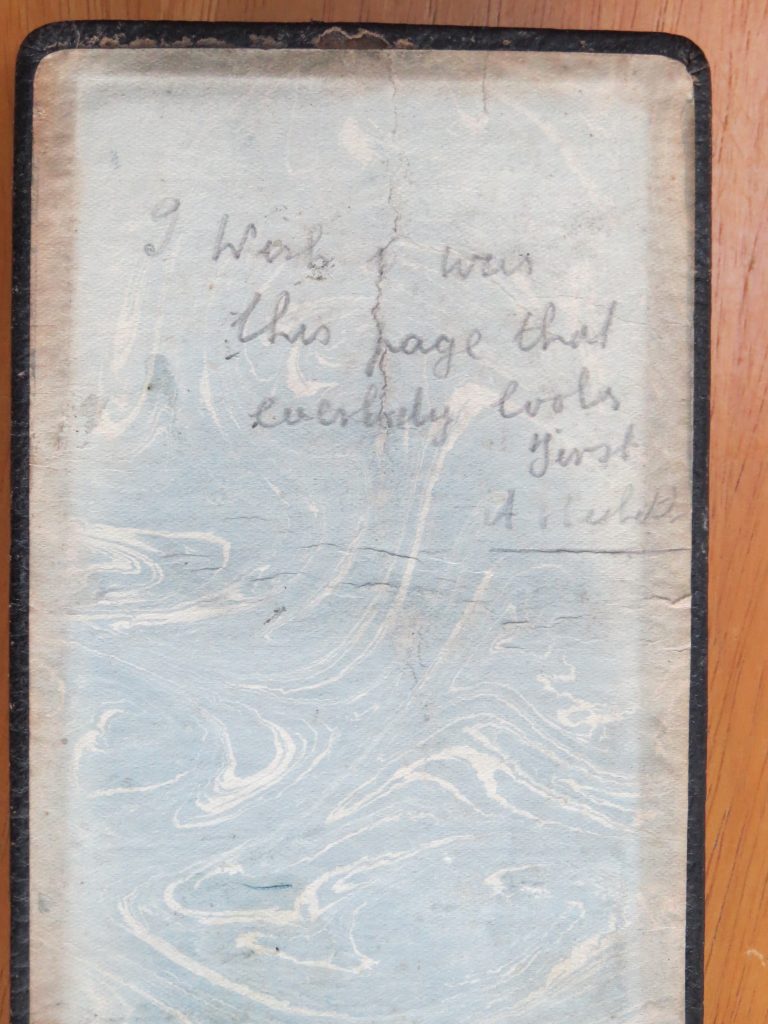 I Wish I was
this page that
everbody looks
first
A